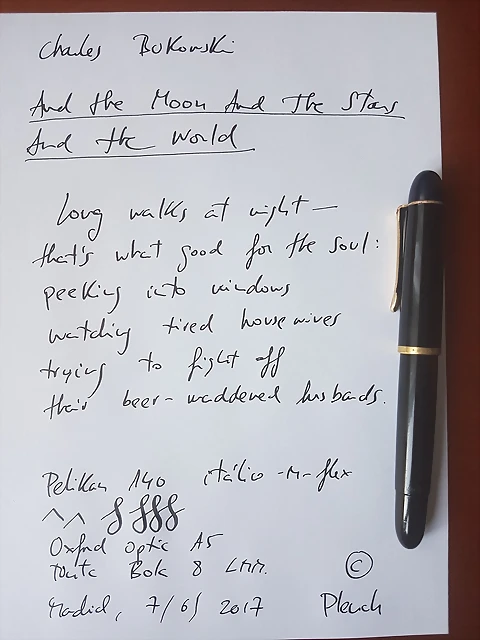 Charles Bukowski
And the Moon And The Stars
And the World
Long walks at night—
that's what good for the soul:
peeking into windows
watching tired housewives
trying to fight off
their beer-maddened husbands.
Pelikan 140 itálio -M- flex
Oxford Optic A5
Bok 8
Madrid, 7/6/2017
©